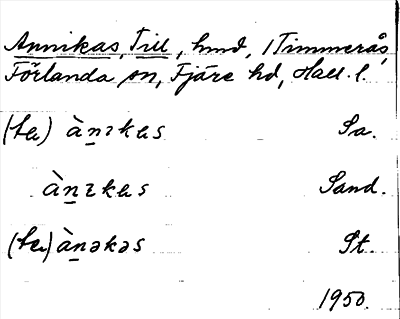 Annikas, Till, hmd, i Timmerås,
Förlanda sn, Fjäre hd, Hall. l.
(ta) àn̲ɪkas Sa.
àn̲ɪkas Sand.
(ta) àn̲əkəs St.
1950.